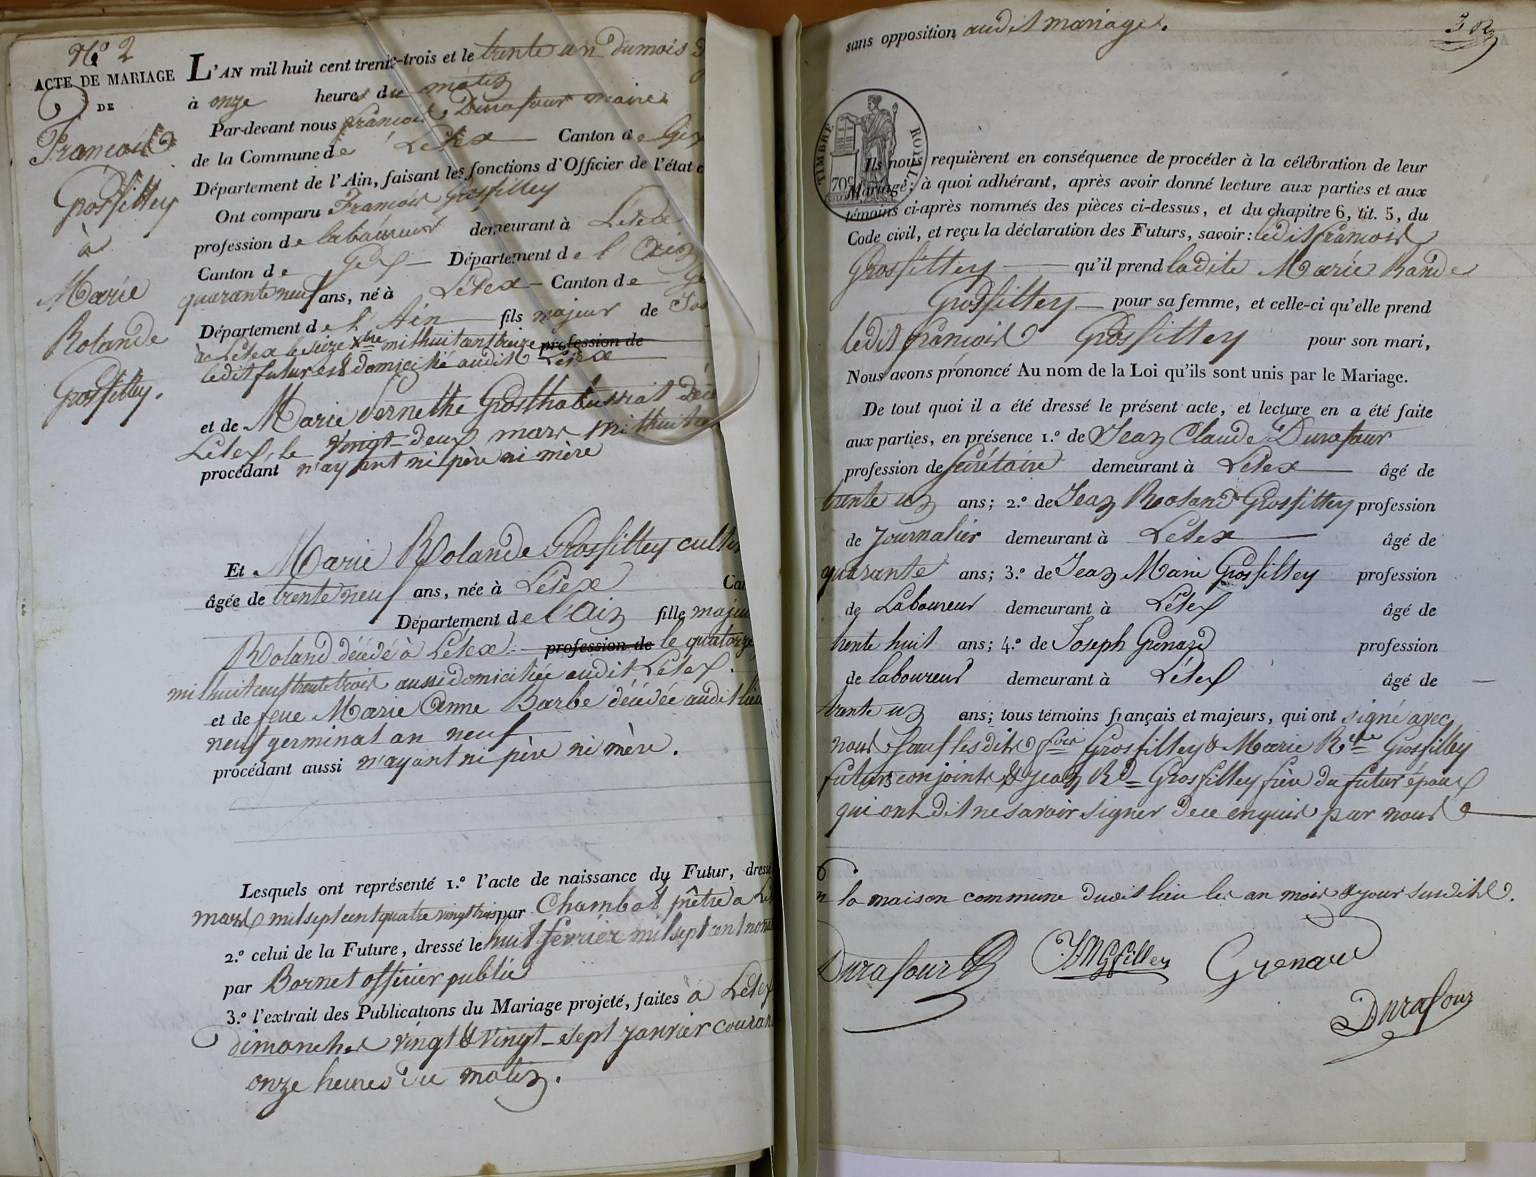 N.o 2
ACTE DE MARIAGE
DE
François
Grosfilley
à
Marie
Rolande
Grosfilley.
L'AN mil huit cent trente-trois et le trente un du mois
à onze heures du matin
Par-devant nous françois Durafour maire
de la Commune de Lélex Canton de Gex
Département de l'Ain, faisant les fonctions d'Officier de l'état
Ont comparu François Grosfilley
profession de laboureur demeurant à Lélex
Canton de Gex Département de l'Ain
quarante neuf ans, né à Lélex Canton de Ge
Département de l'Ain fils majeur de Jos
à Lélex le seize Xbre mil huit cent treize profession de
ledit futur est domicilié audit Lélex
et de Marie Pernethe Grosthabussiat décé
Lélex, le vingt-deux mars mil huit ce
procédant n'ayant ni père ni mère
Et Marie Rolande Grosfilley culti
âgée de trente neuf ans, née à Lélex Can
Département de l'Ain fille majeu
Roland décédé à Lélex profession de le quatorze
mil huit cent trente trois aussi domiciliée audit Lélex.
et de feue Marie Anne Barbe décédée audit lieu
neuf germinal an neuf
procédant aussi n'ayant ni père ni mère.
Lesquels ont représenté 1.o l'acte de naissance du Futur, dressé
mars mil sept cent quatre vingt trois par Chambat prêtre à Lél
2.o celui de la Future, dressé le huit février mil sept cent nona
par Bornet officier public
3.o l'extrait des Publications du Mariage projeté, faites à Lélex
dimanches vingt & vingt-sept janvier couran
onze heures du matin.
sans opposition audit mariage.
TIMBRE ROYAL
70c
Ils nous requièrent en conséquence de procéder à la célébration de leur
Mariage; à quoi adhérant, après avoir donné lecture aux parties et aux
témoins ci-après nommés des pièces ci-dessus, et du chapitre 6, tit. 5, du
Code civil, et reçu la déclaration des Futurs, savoir: ledit françois
Grosfilley qu'il prend ladite Marie Rande
Grosfilley pour sa femme, et celle-ci qu'elle prend
ledit françois Grosfilley pour son mari,
Nous avons prononcé Au nom de la Loi qu'ils sont unis par le Mariage.
De tout quoi il a été dressé le présent acte, et lecture en a été faite
aux parties, en présence 1.o de Jean Claude Durafour
profession de secrétaire demeurant à Lélex âgé de
trente un ans; 2.o de Jean Roland Grosfilley profession
de Journalier demeurant à Lélex âgé de
quarante ans; 3.o de Jean Marie Grosfilley profession
de Laboureur demeurant à Lélex âgé de
trente huit ans; 4.o de Joseph Grenard profession
de laboureur demeurant à Lélex âgé de
trente un ans; tous témoins français et majeurs, qui ont signé avec
nous sauf lesdits fçois Grosfilley & Marie Rde Grosfilley
futurs conjoints & Jean Rd Grosfilley frère du futur époux
qui ont dit ne savoir signer de ce enquis par nous
En la maison commune dudit lieu les an mois & jour susdits.
Durafour JMGfilley Grenard
Durafour